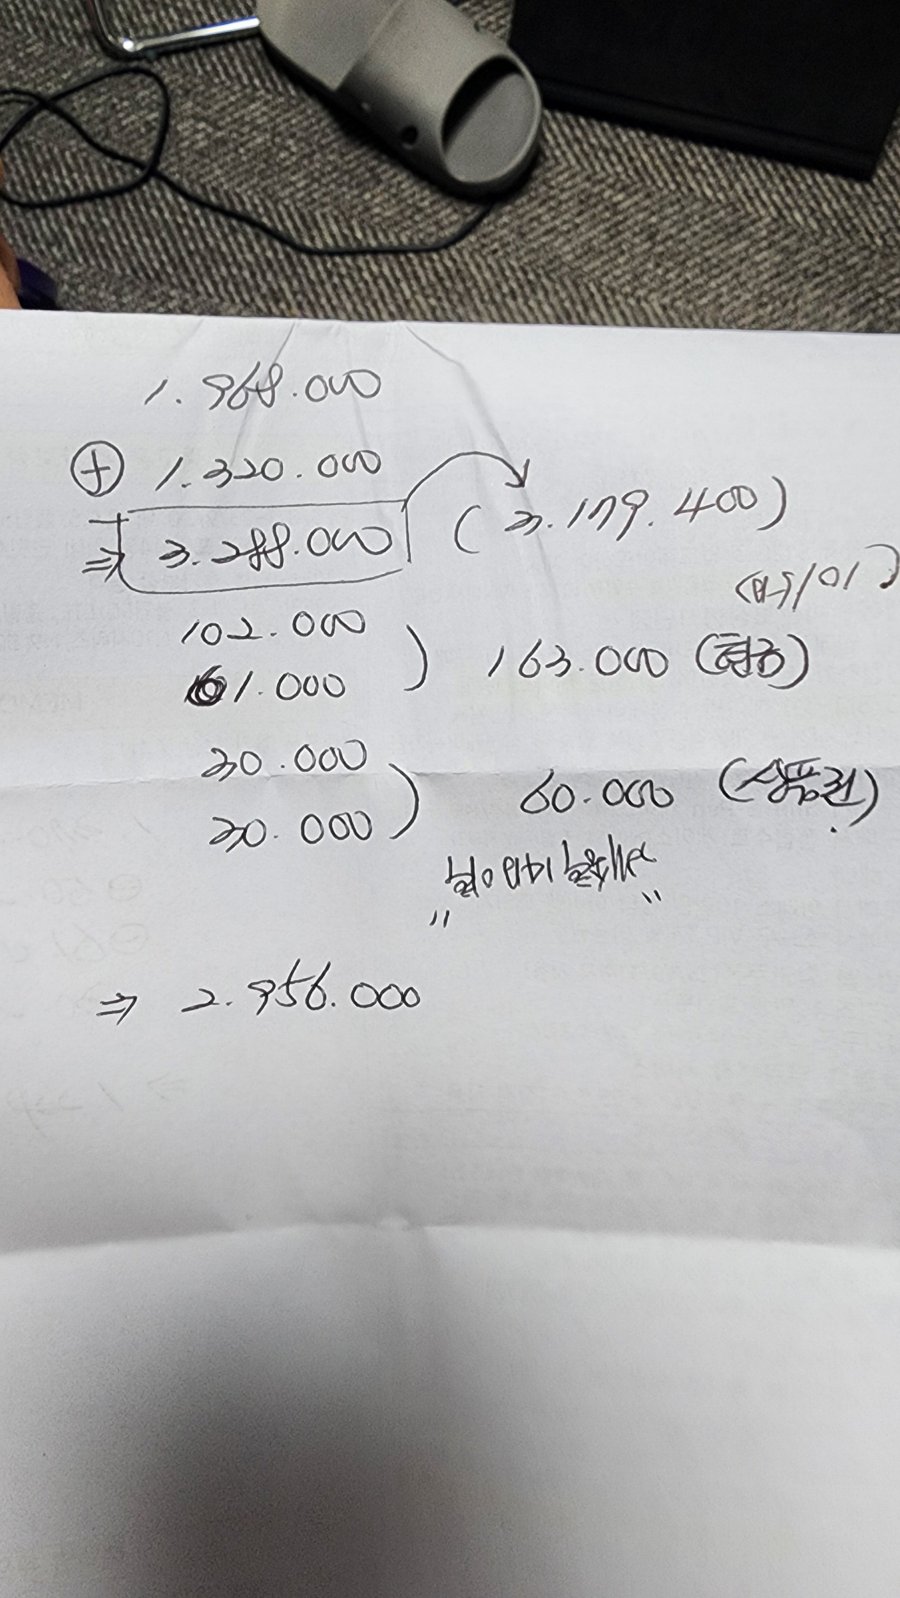 1.968.000
⊕ 1.320.000
⇒ 3.288.000 (3.179.400)
102.000
61.000 ) 163.000 (현금)
30.000
30.000 ) 60.000 (상품권)
⇒ 2.956.000